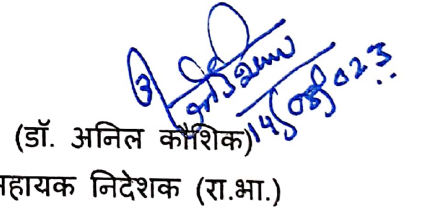 14/08/2023
(डॉ. अनिल कौशिक)
सहायक निदेशक (रा.भा.)